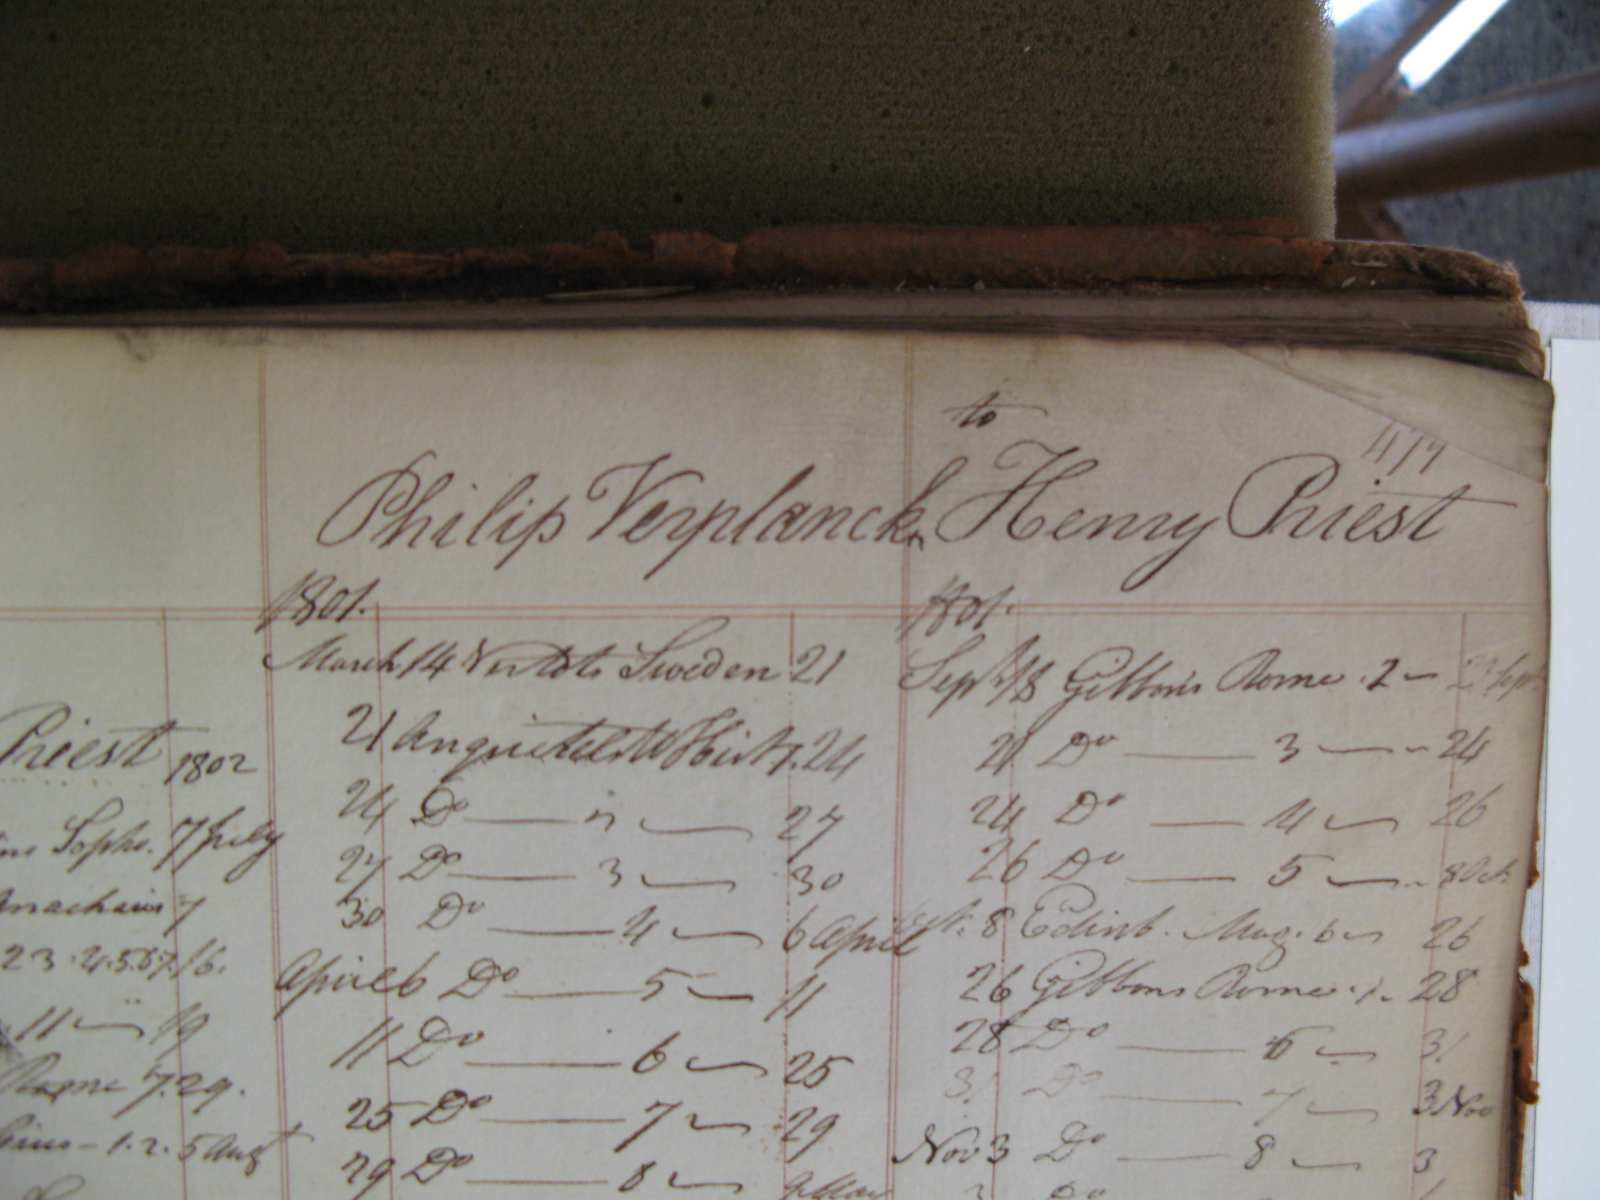 to
419
Philip Verplanck Henry Priest
1801.
March 14 Vertots Sweden 21
21 Hist 1. 24
24 Do — 2 — 27
27 Do — 3 — 30
30 Do — 4 — 6 April
April 6 Do — 5 — 11
11 Do — 6 — 25
25 Do — 7 — 29
29 Do — 8 — May
1801.
Sept 18 Gibbons Rome . 2 — Sept
21 Do — 3 — 24
24 Do — 4 — 26
26 Do — 5 — 8 Oct
8 Edinb. Mag. 6 — 26
26 Gibbons Rome . 1. 28
28 Do — 6 — 31
31 Do — 7 — 3 Nov
Nov 3 Do — 8 — 3
Do
Priest 1802
Sopho. 7 July
7
2 3 . 4. 5. 6 7. 16.
11 — 19
Rome 7. 29.
1. 2. 5 Augt